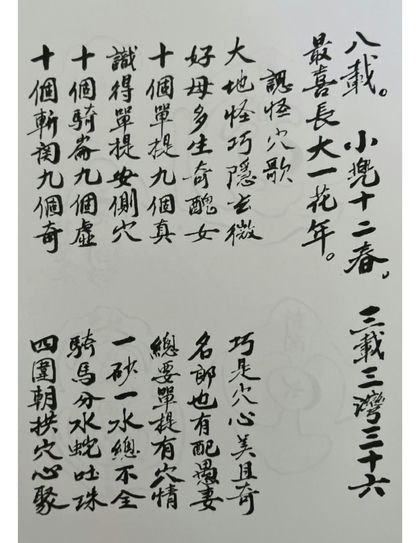 八載。 小兜十二春，三載三灣三十六
最喜長大一花年。
認怪穴歌
大地怪巧隱玄微 巧是穴心美且奇
好母多生奇醜女 名郎也有配愚妻
十個單提九個真 總要單提有穴情
識得單提安側穴 一砂一水總不全
十個騎崙九個虛 騎馬分水蛇吐珠
十個斬関九個奇 四圍朝拱穴心聚